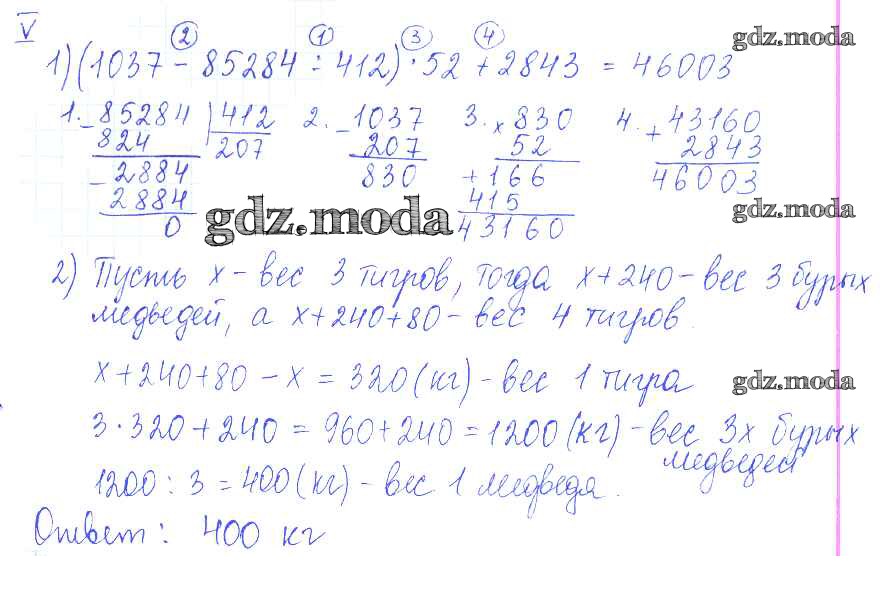 V
② ① ③ ④ gdz.moda
1) (1037 - 85284 : 412) · 52 + 2843 = 46003
1. - 85284 | 412 2. - 1037 3. x 830 4. + 43160
824 207 207 52 2843
- 2884 830 + 166 46003
2884 415
0 gdz.moda 43160 gdz.moda
2) Пусть x - вес 3 тигров, тогда x + 240 - вес 3 бурых
медведей, а x + 240 + 80 - вес 4 тигров.
x + 240 + 80 - x = 320 (кг) - вес 1 тигра gdz.moda
3 · 320 + 240 = 960 + 240 = 1200 (кг) - вес 3х бурых
медведей
1200 : 3 = 400 (кг) - вес 1 медведя.
Ответ: 400 кг